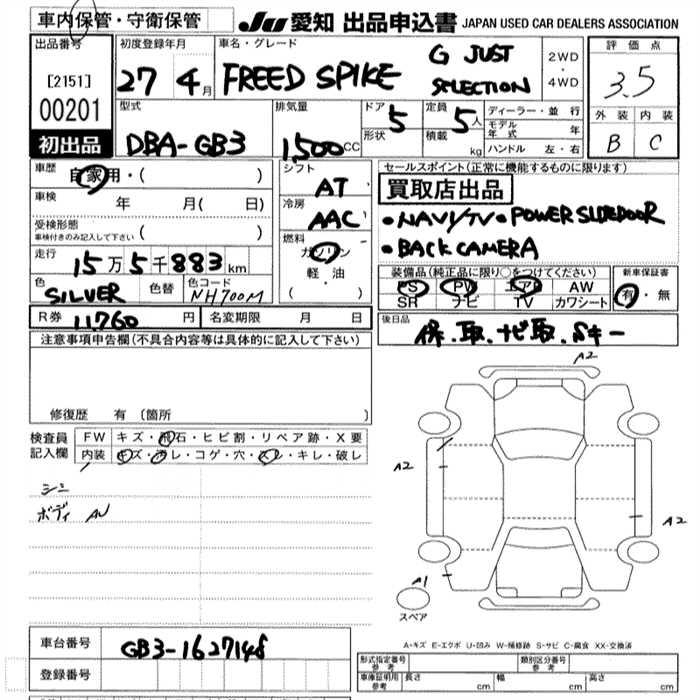 車内保管・守衛保管
JU 愛知 出品申込書 JAPAN USED CAR DEALERS ASSOCIATION
出品番号 初度登録年月 車名・グレード 評価点
[2151] 27 年 4月 FREED SPIKE G JUST SELECTION 2WD・4WD 3.5
00201 型式 排気量 ドア 5 定員 5人 ディーラー・並行 外装 内装
初出品 DBA-GB3 1500CC 形状 積載 kg モデル年式 年 B C
ハンドル 左・右
車歴 自家用・( ) シフト AT セールスポイント(正常に機能するものに限ります)
車検 年 月( 日) 冷房 AAC 買取店出品
受検形態 ( ) ・NAVI/TV・POWER SLIDEDOOR
車検付きのみ記入して下さい 燃料 ・BACK CAMERA
走行 15万5千883km ガソリン 装備品(純正品に限り○をつけてください) 新車保証書
軽・油 PS PW エアB AW 有・無
色 SILVER 色替 色コード NH700M ( ) SR ナビ TV カワシート
R券 11,760円 名変期限 月 日 後日品
注意事項申告欄(不具合内容等は具体的に記入して下さい) 保.取.ナビ取.Sキー
修復歴 有(箇所
検査員記入欄 FW キズ・飛石・ヒビ割・リペア跡・X要
内装 キズ・汚レ・コゲ・穴・スレ・キレ・破レ
シミ
ボディ AU
A2
A2
A2
A1
スペア
A-キズ E-エクボ U-凹み W-補修跡 S-サビ C-腐食 XX-交換済
車台番号 GB3-1627148
登録番号
形式指定番号 参考 類別区分番号 参考
車庫証明用 参考 長さ cm 幅 cm 高さ cm